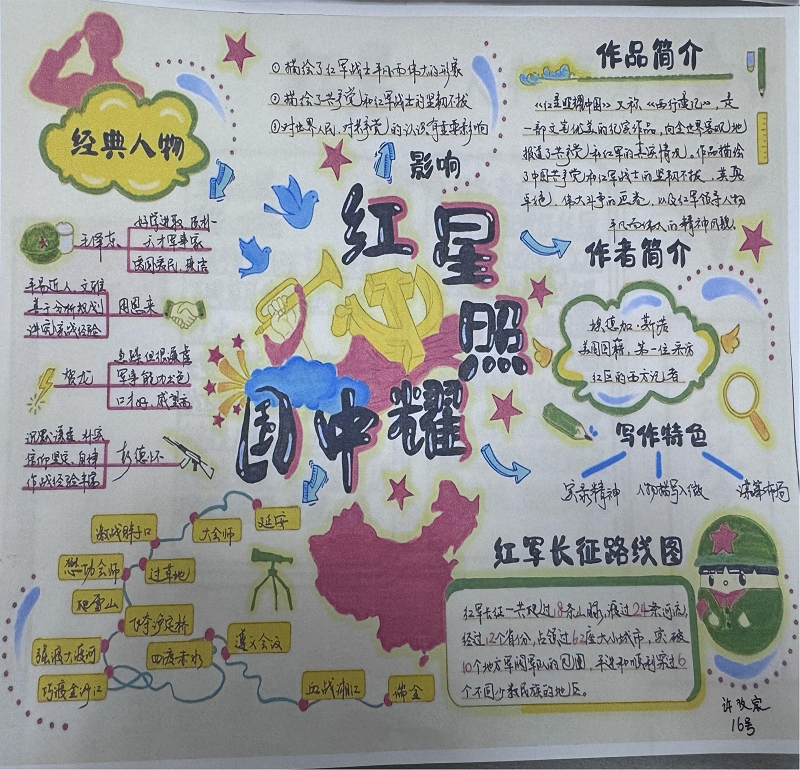 ①描绘了红军战士平凡而伟大的形象
②描绘了共产党和红军战士的坚韧不拔
③对世界人民,对共产党的认识有重要影响
影响
作品简介
《红星照耀中国》又称《西行漫记》,是
一部文笔优美的纪实作品,向全世界客观地
报道了共产党和红军的真实情况。作品描绘
了中国共产党和红军战士的坚韧不拔、英勇
卓绝、伟大斗争的画卷,以及红军领导人物
平凡而伟大的精神风貌。
经典人物
毛泽东
好学进取
天才军事家
平易近人、文雅
善于分析规划
讲究实战经验
周恩来
贺龙
直爽但很谦虚
军事能力出色
口才好,感染高
沉默谦虚、朴实
作战经验丰富
彭德怀
红星
照
耀
中
国
作者简介
埃德加·斯诺
美国国籍,第一位采访
红区的西方记者
写作特色
实录精神
人物描写入微
谋篇布局
延安
大会师
激战腊子口
过草地
懋功会师
爬雪山
飞夺泸定桥
强渡大渡河
四渡赤水
遵义会议
巧渡金沙江
血战湘江
瑞金
红军长征路线图
红军长征一共爬过18条山脉,渡过24条河流,
经过12个省份,占领过62座大小城市,突破
10个地方军阀军队的包围,平进和顺利穿过6
个不同少数民族的地区。
16号